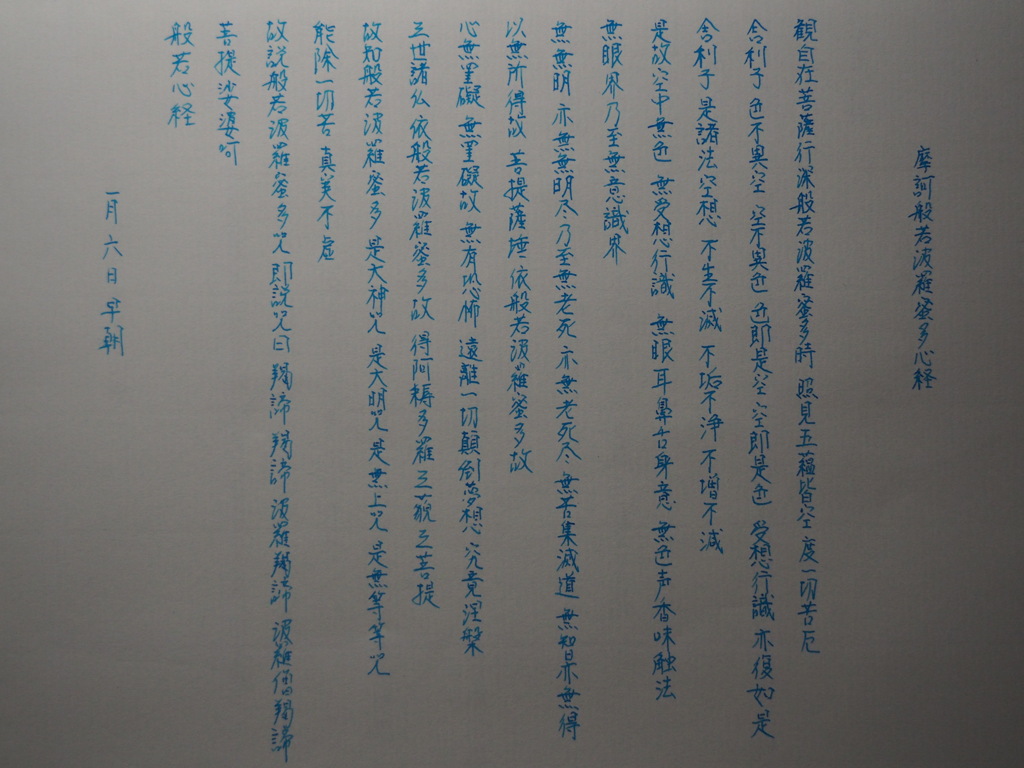 摩訶般若波羅蜜多心経
観自在菩薩行深般若波羅蜜多時 照見五蘊皆空 度一切苦厄
舎利子 色不異空 空不異色 色即是空 空即是色 受想行識 亦復如是
舎利子 是諸法空想 不生不滅 不垢不浄 不増不減
是故空中無色 無受想行識 無眼耳鼻舌身意 無色声香味触法
無眼界乃至無意識界
無無明 亦無無明尽 乃至無老死 亦無老死尽 無苦集滅道 無智亦無得
以無所得故 菩提薩埵 依般若波羅蜜多故
心無罣礙 無罣礙故 無有恐怖 遠離一切顛倒夢想 究竟涅槃
三世諸仏 依般若波羅蜜多故 得阿耨多羅三藐三菩提
故知般若波羅蜜多 是大神咒 是大明咒 是無上咒 是無等等咒
能除一切苦 真実不虚
故説般若波羅蜜多咒 即説咒曰 羯諦 羯諦 波羅羯諦 波羅僧羯諦
菩提娑婆呵
般若心経
一月六日早朝